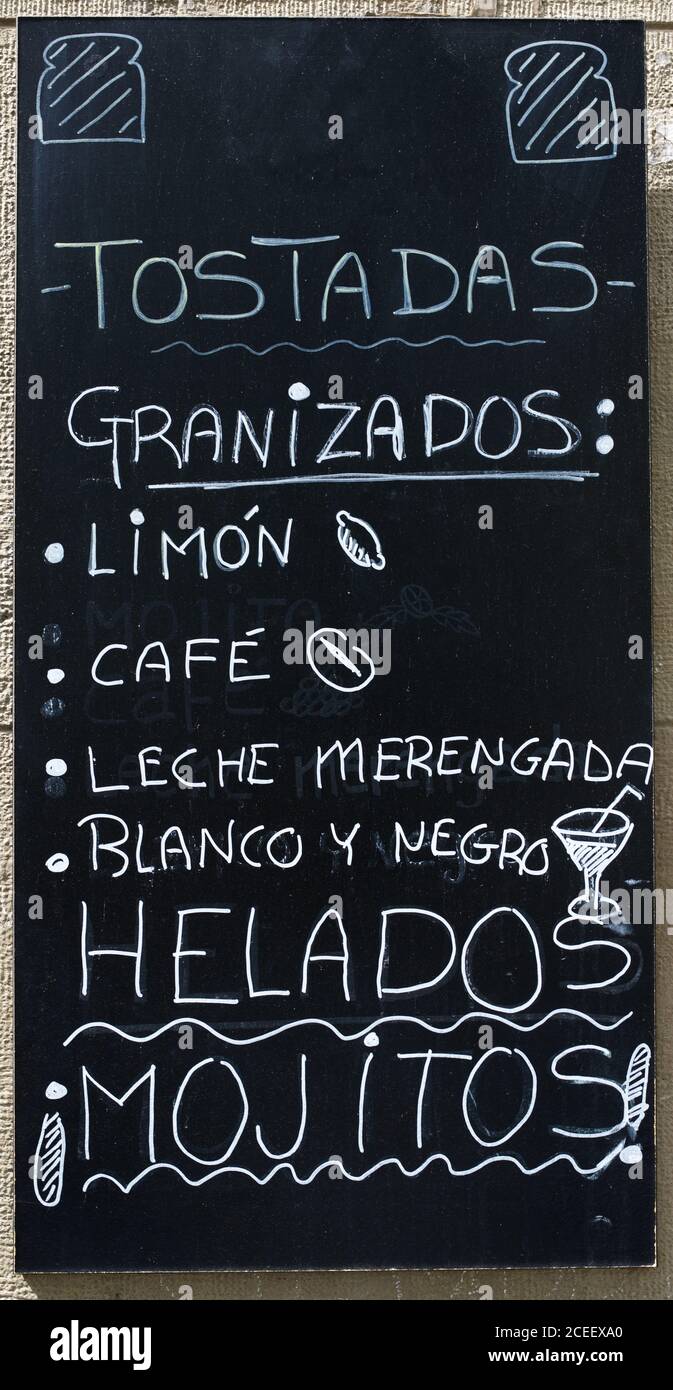 -TOSTADAS-
GRANiZADOS:
• LiMÓN
MOJITO
• CAFÉ
Café
• LECHE MERENGADA
• BLANCO Y NEGRO
HELADOS
¡MOJiTOS!
alamy
Image ID: 2CEEXA0
www.alamy.com